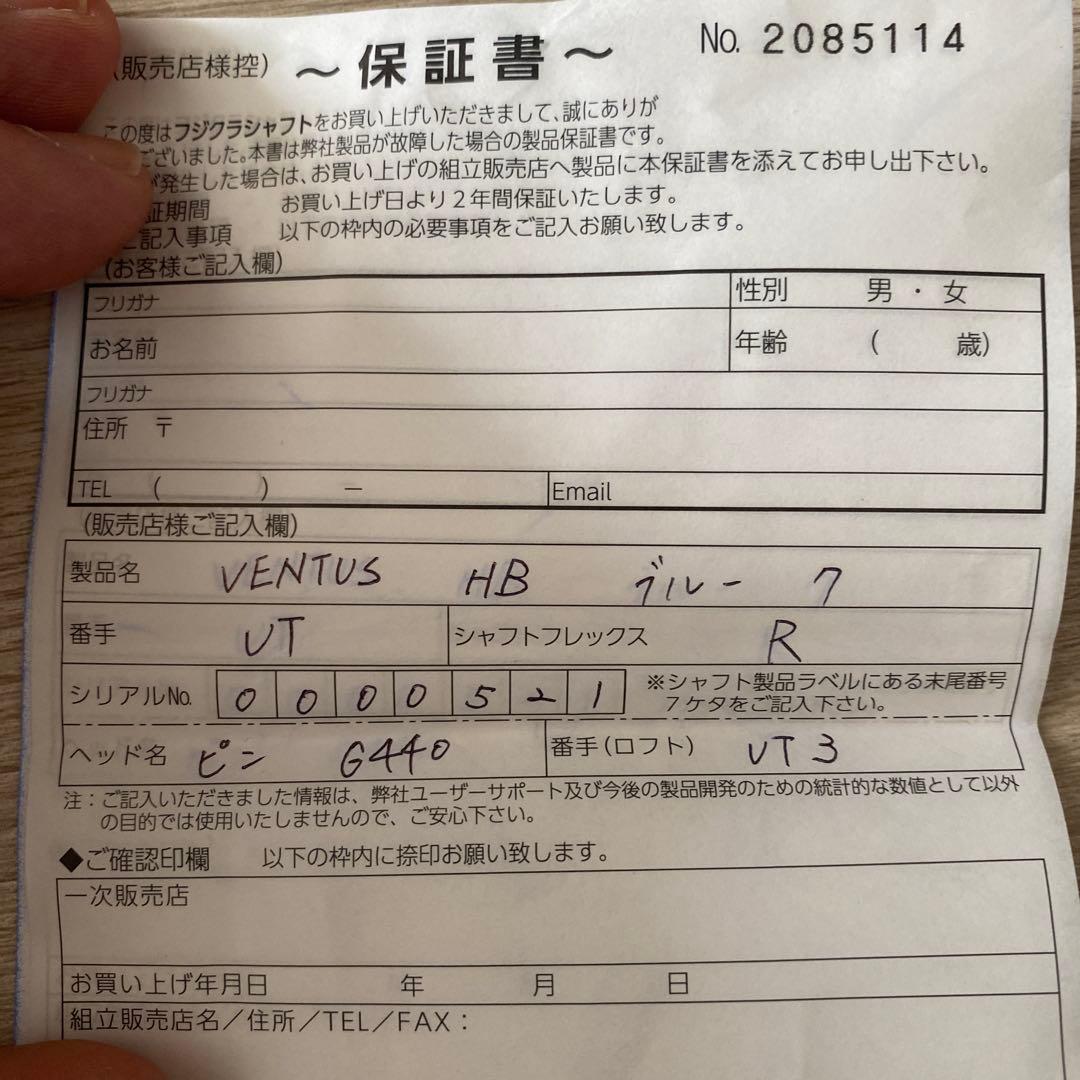 (販売店様控) ～保証書～ No. 2085114
この度はフジクラシャフトをお買い上げいただきまして、誠にありが
ございました。本書は弊社製品が故障した場合の製品保証書です。
が発生した場合は、お買い上げの組立販売店へ製品に本保証書を添えてお申し出下さい。
証期間 お買い上げ日より2年間保証いたします。
ご記入事項 以下の枠内の必要事項をご記入お願い致します。
(お客様ご記入欄)
フリガナ 性別 男・女
お名前 年齢 ( 歳)
フリガナ
住所 〒
TEL ( ) − Email
(販売店様ご記入欄)
製品名 VENTUS HB ブルー 7
番手 UT シャフトフレックス R
シリアルNo. 0 0 0 0 5 2 1 ※シャフト製品ラベルにある末尾番号
7ケタをご記入下さい。
ヘッド名 ピン G440 番手(ロフト) UT3
注：ご記入いただきました情報は、弊社ユーザーサポート及び今後の製品開発のための統計的な数値として以外
の目的では使用いたしませんので、ご安心下さい。
◆ご確認印欄 以下の枠内に捺印お願い致します。
一次販売店
お買い上げ年月日 年 月 日
組立販売店名／住所／TEL／FAX：